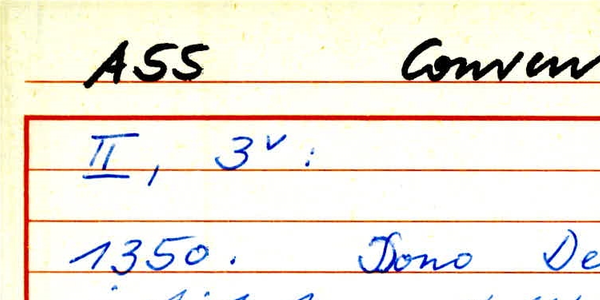 ASS Conven
II, 3v:
1350. Dono De